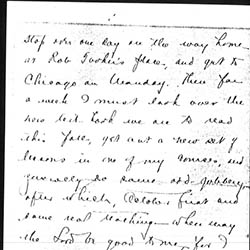 stop over one day on the way home
at Rob Parker's place, and get to
Chicago on Monday. Then for
a week I must look over the
new text book we are to read
this fall, get out a new set of
lessons in one of my courses, and
generally do some odd jobs
after which, Color. first and
some real teaching when may
the Lord be good to me, for I